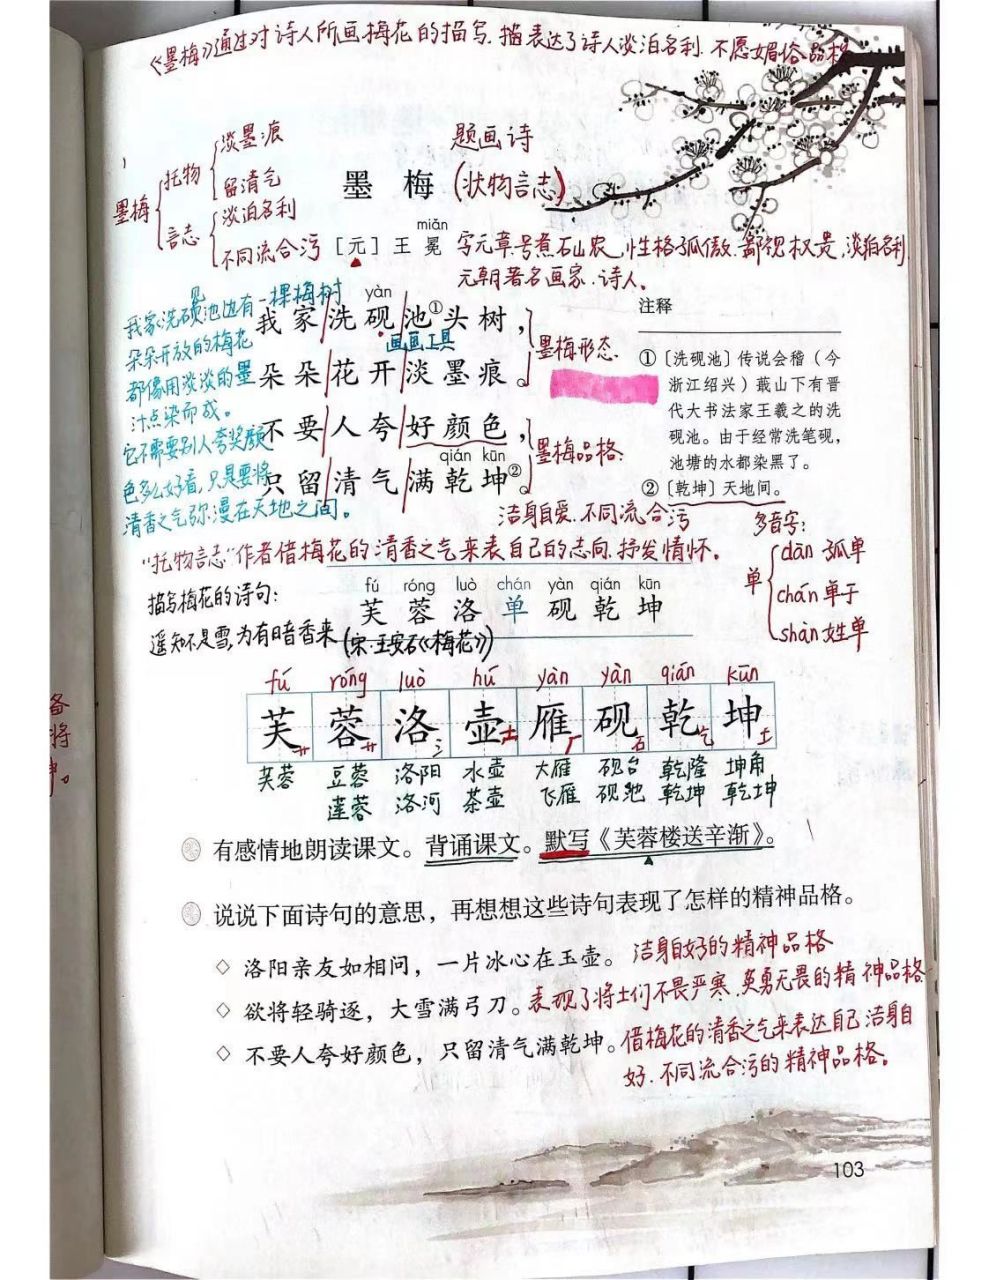 《墨梅》通过对诗人所画梅花的描写.描表达了诗人淡泊名利.不愿媚俗品格
淡墨痕
托物
留清气
墨梅
淡泊名利
言志
不同流合污
题画诗
墨梅(状物言志)
miǎn
[元]王冕 字元章.号煮石山农,性格孤傲.鄙视权贵,淡泊名利
元朝著名画家.诗人。
我家洗砚池边有一棵梅树
见
朵朵开放的梅花
都像用淡淡的墨
汁点染而成。
它不需要别人夸奖颜
色多么好看,只是要将
清香之气弥漫在天地之间。
yàn
我家洗砚池①头树,
画画工具
朵朵花开淡墨痕。
墨梅形态.
不要人夸好颜色,
qián kūn
只留清气满乾坤②。
墨梅品格.
洁身自爱.不同流合污
注释
①〔洗砚池〕传说会稽(今
浙江绍兴)蕺山下有晋
代大书法家王羲之的洗
砚池。由于经常洗笔砚,
池塘的水都染黑了。
②〔乾坤〕天地间。
"托物言志"作者借梅花的清香之气来表自己的志向.抒发情怀。
多音字:
单
dān 孤单
chán 单于
shàn 姓单
描写梅花的诗句:
遥知不是雪,为有暗香来(宋·王安石《梅花》)
fú róng luò chán yàn qián kūn
芙蓉洛单砚乾坤
fú róng luò hú yàn yàn qián kūn
芙蓉洛壶雁砚乾坤
艹 艹 氵 士 厂 石 乞 土
芙蓉 豆蓉 洛阳 水壶 大雁 砚台 乾隆 坤角
莲蓉 洛河 茶壶 飞雁 砚池 乾坤 乾坤
有感情地朗读课文。背诵课文。默写《芙蓉楼送辛渐》。
说说下面诗句的意思,再想想这些诗句表现了怎样的精神品格。
◇ 洛阳亲友如相问,一片冰心在玉壶。 洁身自好的精神品格
◇ 欲将轻骑逐,大雪满弓刀。表现了将士们不畏严寒.英勇无畏的精神品格
◇ 不要人夸好颜色,只留清气满乾坤。借梅花的清香之气来表达自己洁身自
好.不同流合污的精神品格。
103
备
将